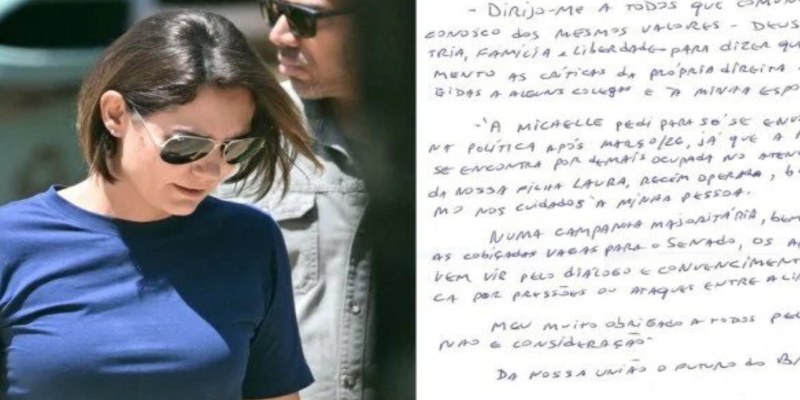 - DIRIJO-ME A TODOS QUE COMUN
CONOSCO DOS MESMOS VALORES - DEUS
TRIA, FAMÍLIA E LIBERDADE - PARA DIZER QU
MENTO AS CRÍTICAS DA PRÓPRIA DIREITA
GIDAS A ALGUNS COLEGAS E À MINHA ESPO
- À MICHELLE PEDI PARA SÓ SE ENV
NA POLÍTICA APÓS MARÇO/26, JÁ QUE A
SE ENCONTRA POR DEMAIS OCUPADA NO ATEN
DA NOSSA FILHA LAURA, RECÉM OPERADA, B
MO NOS CUIDADOS À MINHA PESSOA.
NUMA CAMPANHA MAJORITÁRIA, BEM
AS COBIÇADAS VAGAS PARA O SENADO, OS A
VEM VIR PELO DIÁLOGO E CONVENCIMENT
CA POR PRESSÕES OU ATAQUES ENTRE ALI
MEU MUITO OBRIGADO A TODOS PE
NÃO E CONSIDERAÇÃO
DA NOSSA UNIÃO O FUTURO DO B